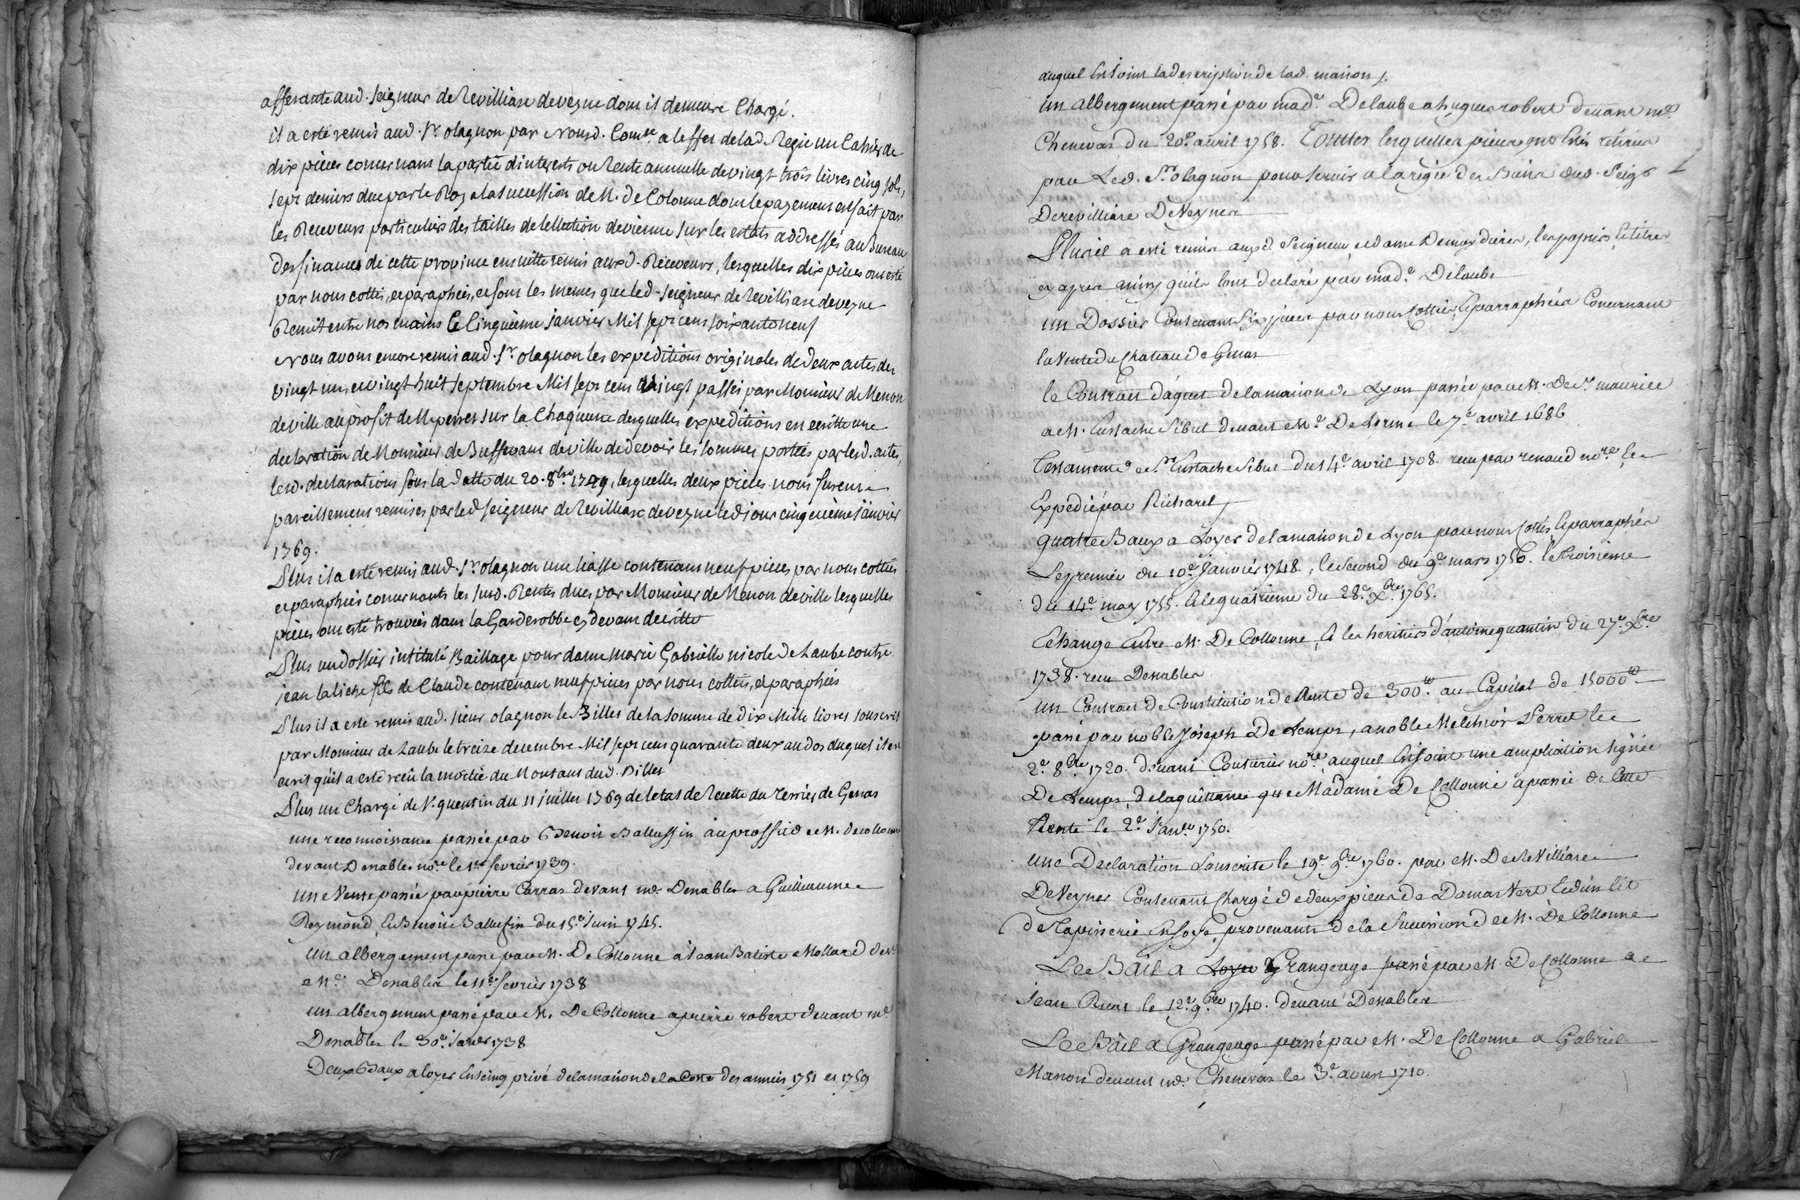 afferante aud. seigneur de Revilliasc de veyne dont il demeure Chargé.
il a esté remis aud. Sr. olagnon par nousd. Comre. a leffet de lad. Regie un Cahier de
dix pieces concernant la partie d'interests ou Rente annuelle de vingt trois livres cinq sols,
sept deniers due par le Roy a la succession de M. de Colonne dont le payement est fait par
les Receveurs particuliers des tailles de lellection de vienne sur les estats addressés au Bureau
des finances de cette province ensuitte remis auxd. Receveurs, lesquelles dix pieces ont esté
par nous cottés, et paraphées, et sont les memes que led. seigneur de Revilliasc de veyne
Remit entre nos mains le Cinquieme janvier Mil sept cent soixante neuf
Nous avons encore remis aud. Sr. olagnon les expeditions originales de deux actes des
vingt un et vingt huit septembre Mil sept cent vingt passés par Monsieur de Menon
de ville au profit de M. perret sur la Chaqu'une desquelles expeditions est ecritte une
declaration de Monsieur de Buffevant de ville de devoir les sommes portées par lesd. actes,
lesd. declarations sous la datte du 20. 8bre 1749, lesquelles deux pieces nous furent
pareillement remises par led. seigneur de Revilliasc de veyne led. jour cinquieme janvier
1769.
Plus il a esté remis aud. Sr. olagnon une liasse contenant neuf pieces par nous cottées
et paraphées concernants les susd. Rentes dues par Monsieur de Menon de ville lesquelles
pieces ont esté trouvées dans la Garderobbe cy devant decritte
Plus un dossier intitulé Baillage pour dame marie Gabrielle nicole de Laube contre
jean laliche fils de Claude contenant neuf pieces par nous cottées, et paraphées
Plus il a esté remis aud. sieur olagnon le Billet de la somme de dix Mille livres souscrit
par Monsieur de Laube le treize decembre Mil sept cent quarante deux au dos duquel il est
ecrit qu'il a esté reçû la moitié du Montant dud. Billet
Plus un Chargé de St. quentin du 11 juillet 1769 de letat de Recette du Terrier de Genas
une reconnoissance passée par Benoit Ballussin au proffit de M. de collonne
devant Denables nore. le 1er fevrier 1739.
une Vente passée par pierre Carras devant me. Denables a Guillaume
Reymond, & Benoit Ballussin du 15e. Juin 1745.
un albergement passé par M. De Collonne à Jean Batiste Mollard devt.
Me. Denables le 11e fevrier 1738
un albergement passé par M. De Collonne a pierre robert devant me.
Denables le 30e. Janver 1738
Deux Baux a loyer En seing privé de la maison de la Coste des années 1751 et 1759
auquel Est joint la description de lad. maison /.
un albergement passé par made. Delaube a hugues robert devant me.
Chenevas du 20e. avril 1758. Touttes lesquelles pieces ont étés retirées
par Led. Sr. olagnon pour servir a la regie des Biens dud. Seigr
De revilliasc De Veynes
Plus il a esté remis auxd. Seigneur et dame Demardieres, les papiers, & titres
cy apres ainsy qu'ils l'ont declaré par made. Delaube
un Dossier Contenant Six pieces par nous Cottées, & parraphées Concernant
la Vente du Chateau de Genas
le Contract d'aquet de la maison de Lyon passée par M. De St. maurice
a M. Eustache Sibut devant Me. De Lorme le 7e. avril 1686
Testament de Sr. Eustache Sibut du 14e. avril 1708. receu par renaud nore. &
Expedié par Richard /
quatre Baux a Loyer de la maison de Lyon par nous Cottés, & parraphés
Le premier du 10e. Janvier 1748, le second du 9e. mars 1750. le troisieme
du 14e. may 1755. & le quatrieme du 28e. Xbre 1765.
Echange Entre M. De Collonne, & les heritiers d'antoine quantin du 27e. Xbre
1738. receu Denables
un Contract de Constitution de Rente de 300tt. au Capital de 15000tt
passé par noble Joseph De Lemps, a noble Melchior Perret le
2e. 8bre 1720. devant Couturier nore. auquel Est joint une ampliation signée
De Lemps, de la quittance que Madame De Collonne a passée de Cette
Rente le 2e. Janver 1750.
une Declaration Souscrite le 19e. 9bre 1760. par M. De Revilliasc
De Veynes Contenant Chargé de deux pieces de Damas Vert & d'un lit
de Tapisserie En soye, provenants de la Succession de M. De Collonne
Le Bail a Loyer Grangeage passé par M. De Collonne a
Jean Ruat le 12e. 9bre 1740. devant Denables
Le Bail a Grangeage passé par M. De Collonne a Gabriel
Manon devant me. Chenevas le 3e. aoust 1710.